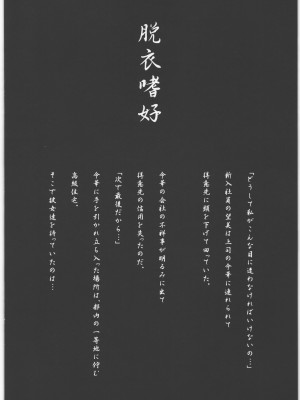 脱衣嗜好
「どうして私がこんな目に遭わなければいけないの…」
新入社員の望美は上司の今華に連れられて
得意先に頭を下げて回っていた。
今華の会社の不祥事が明るみに出て
得意先の信用を失ったのだ。
「次で最後だから…」
今華に手を引かれ立ち入った場所は、都内の一等地に佇む
高級住宅。
そこで彼女達を待っていたのは…